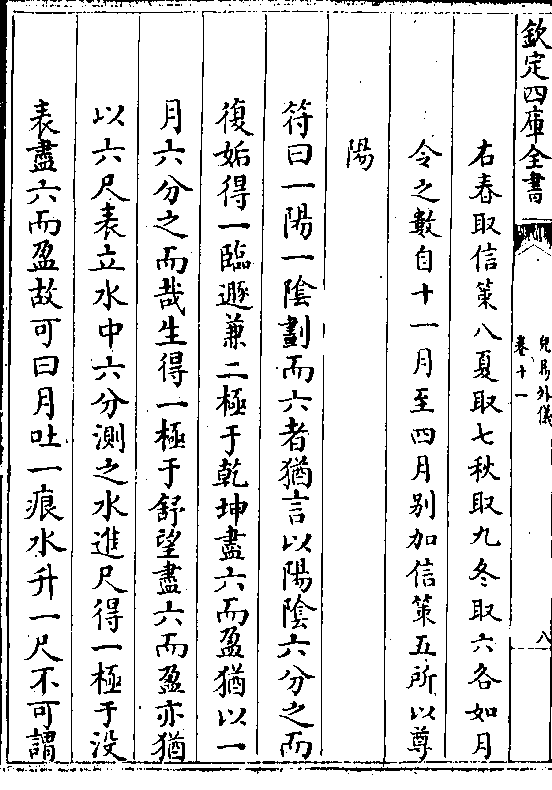 欽定四庫全書
兒易外儀
卷十一
八
右春取信策八夏取七秋取九冬取六各如月
令之數自十一月至四月别加信策五所以尊
陽
符曰一陽一陰劃而六者猶言以陽陰六分之而
復姤得一臨遯兼二極于乾坤盡六而盈猶以一
月六分之而哉生得一極于舒望盡六而盈亦猶
以六尺表立水中六分測之水進尺得一極于没
表盡六而盈故可曰月吐一痕水升一尺不可謂